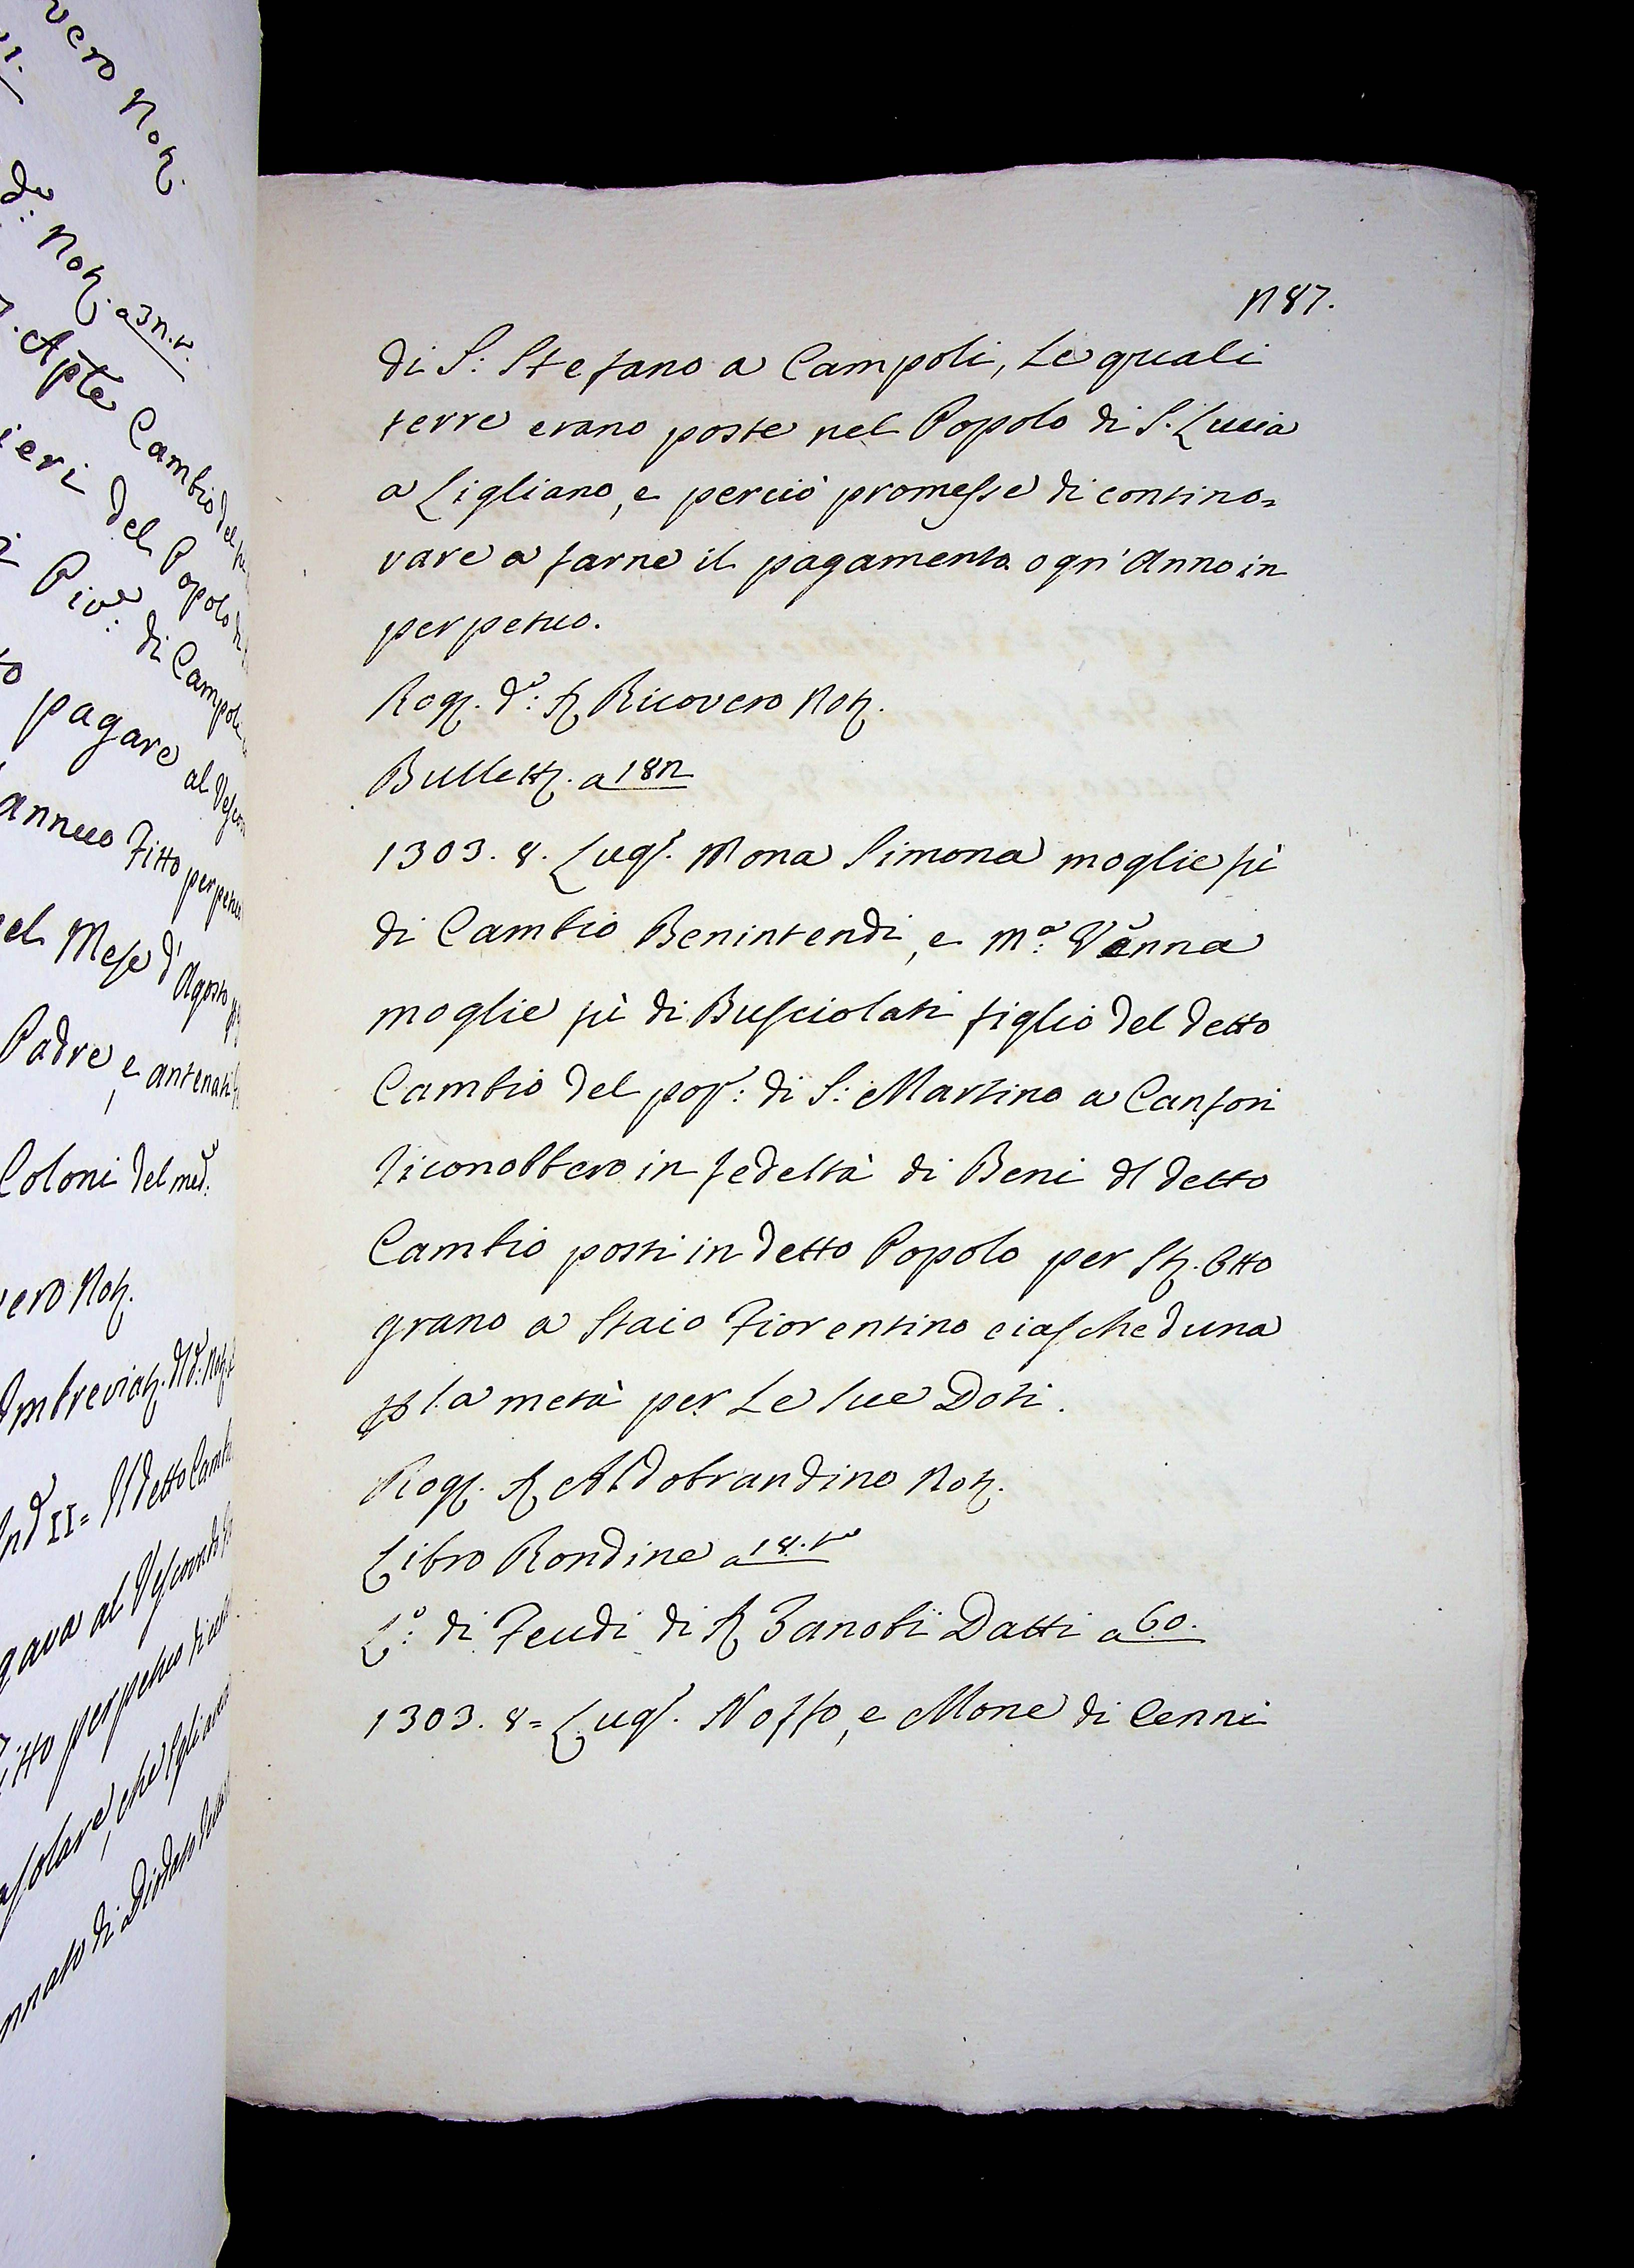 vero Noṭ.
d.º: Noṭ. a 3n.t.
Apte Cambio del
ieri del Popolo di
Piv.e: di Campoli
to pagare al Vescov
annuo Fitto perpetuo
el Mese d'Agosto
Padre, e antenati
Coloni del med.º:
vero Noṭ.
Imbreviaz. dl d.º: Noṭ.
Ind. II= Il detto Camb
gava al Vescovado
itto perpetuo di
asolare, che Egli aveva
nnato di Diodato
n87.
di S: Stefano a Campoli, Le quali
terre erano poste nel Popolo di S. Lucia
a Ligliano, e perciò promesse di contino=
vare a farne il pagamento ogn'Anno in
perpetuo.
Rog. d.º: Sr Ricovero Noṭ.
Bullett. a 18n
1303. 8. Lug. Mona Simona moglie fù
di Cambio Benintendi, e M.ª: Vanna
moglie fù di Busciolati figlio del detto
Cambio del pop.º: di S: Martino a Canfori
Riconobbero in fedeltà di Beni dl detto
Cambio posti in detto Popolo per St. Otto
grano a Staio Fiorentino ciascheduna
p la metà per Le Sue Doti.
Rog. Sr Aldobrandino Noṭ.
Libro Rondine a 18.t.º
L.º: di Feudi di Sr Zanobi Datti a 60.
1303. 8= Lug. Noffo, e Mone di Cenni